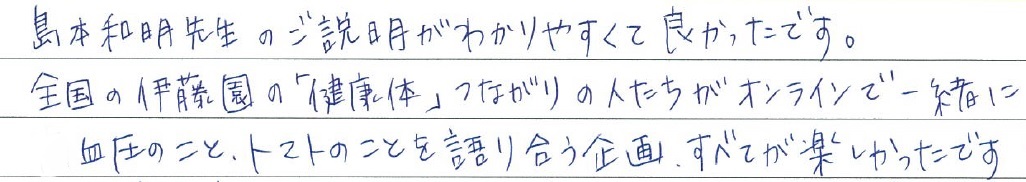 島本和明先生のご説明がわかりやすくて良かったです。
全国の伊藤園の「健康体」つながりの人たちがオンラインで一緒に
血圧のこと、トマトのことを語り合う企画、すべてが楽しかったです